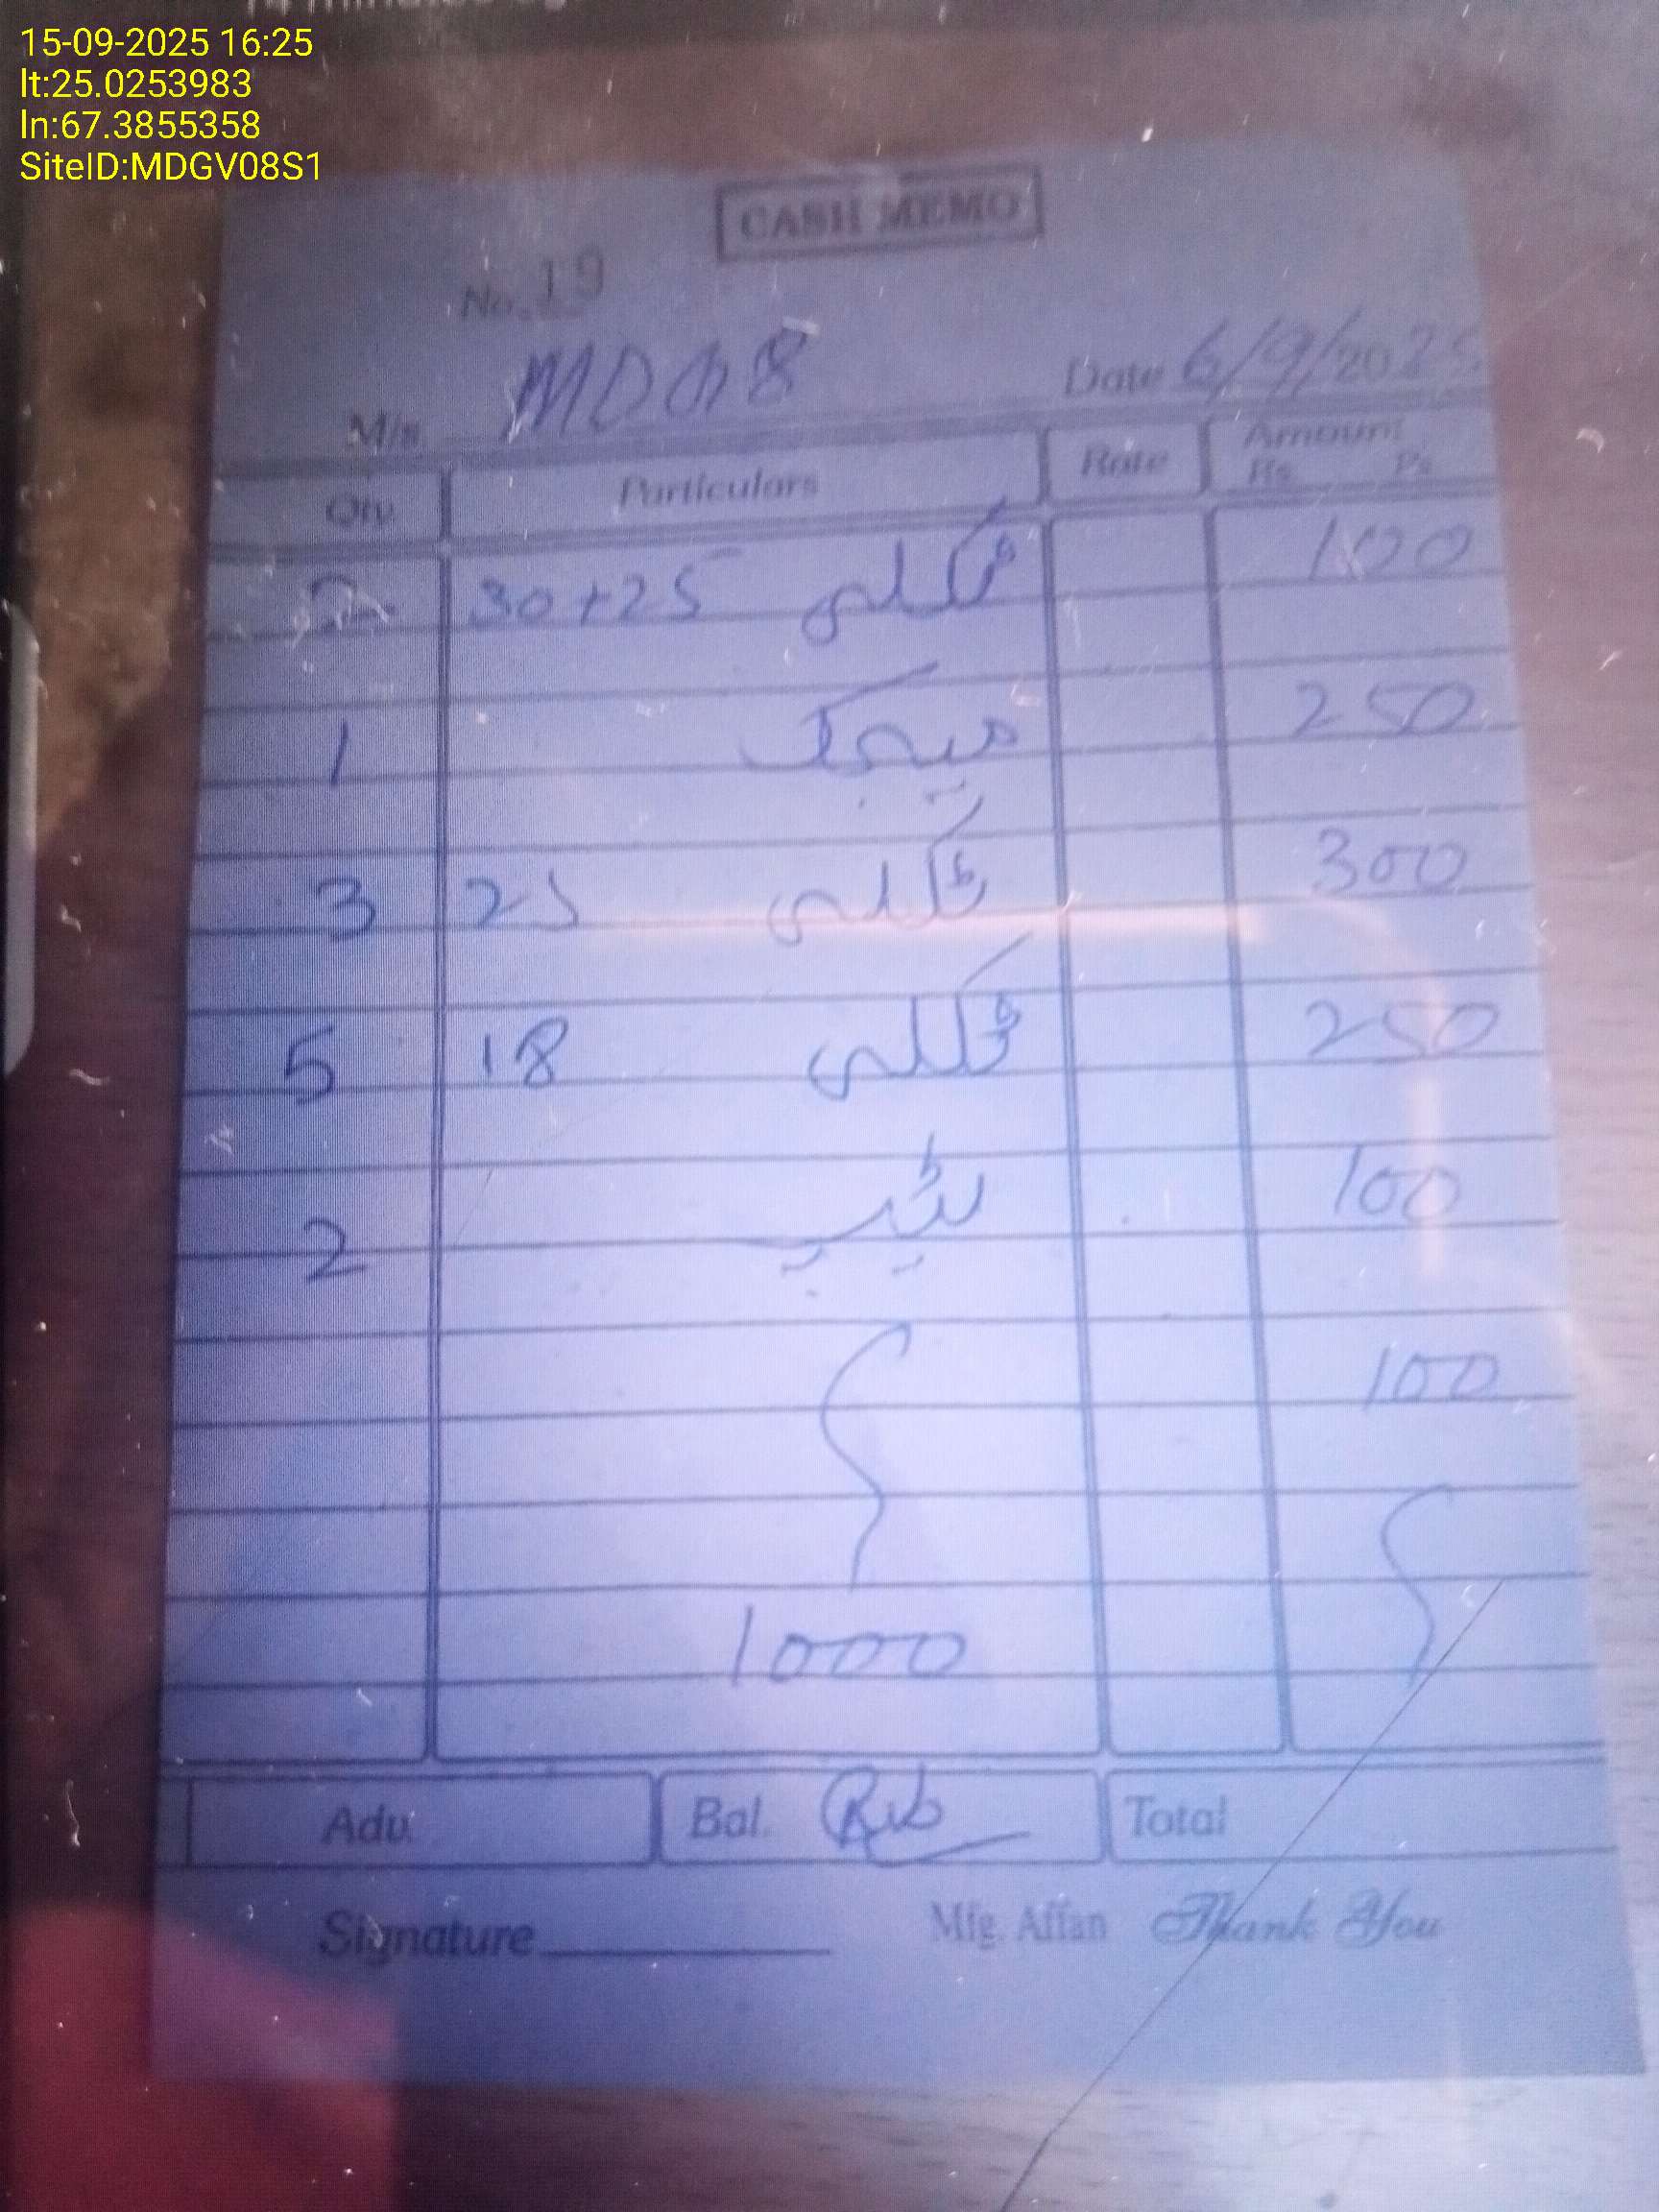 15-09-2025 16:25
lt:25.0253983
ln:67.3855358
SiteID:MDGV08S1
CASH MEMO
No. 19
M/s. Date 6/9/2025
Qty. Particulars Rate Amount
Rs. Ps.
2 30+25 100
1 250
3 25 300
5 18 250
2 ٹیپ 100
100
1000
Adv. Bal. Total
Signature Mfg. Affan Thank You